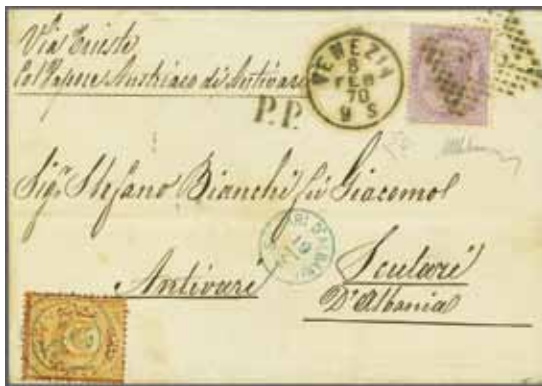 Via Trieste
Col Vapore Austriaco di Antivari
VENEZIA
8
FEB
70
9 S
P.P.
Sigr. Stefano Bianchi fu Giacomo
Antivari
Scutari
D'Albania
19